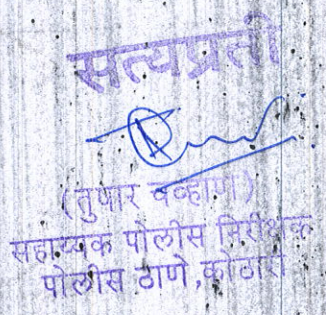 सत्यप्रती
(तुषार चव्हाण)
सहाय्यक पोलीस निरीक्षक
पोलीस ठाणे,कोठारी